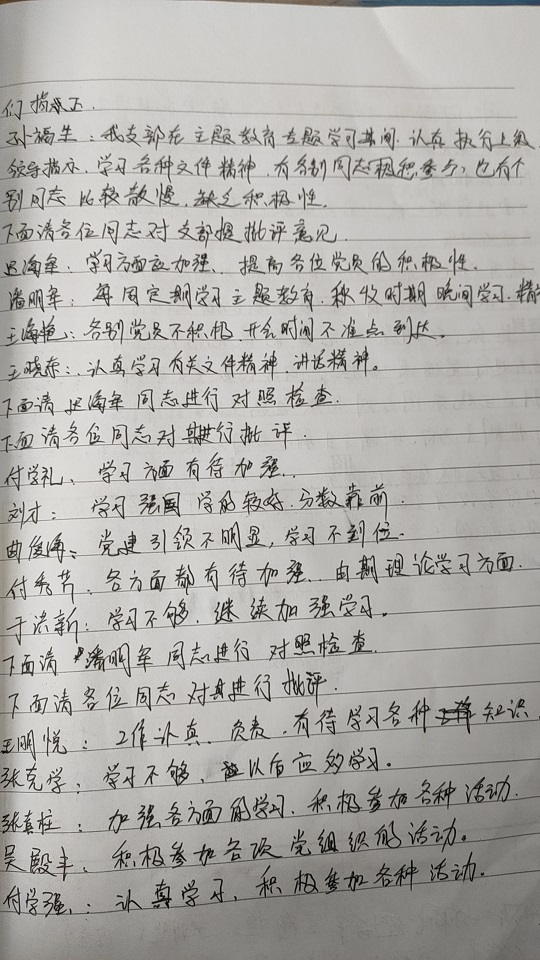 们指示下.
孙福生：我支部在主题教育专题学习其间.认真执行上级
领导指示.学习各种文件精神.有各别同志积极参与，也有个
别同志比较散慢.缺乏积极性.
下面请各位同志对支部提批评意见.
海军.学习方面应加强、提高各位党员的积极性.
潘明军：每周定期学习主题教育.秋收时期晚间学习.精
王海艳：各别党员不积极.开会时间不准点到从.
王晓东：.认真学习有关文件精神.讲话精神。
下面请海军同志进行对照检查.
下面请各位同志对其进行批评.
付学礼、学习方面有待加强.
刘才：学习强国学的较好.分数靠前.
曲俊海：党建引领不明显，学习不到位.
付秀芹.各方面都有待加强.由期理论学习方面.
于洪新：学习不够.继续加强学习。
下面请潘明军同志进行对照检查.
下面请各位同志对其进行批评.
王明悦：工作认真.负责.有待学习各种知识.
张克学：学习不够、以后应多学习。
张桂：加强各方面的学习.积极参加各种活动.
吴殿丰：积极参加各项党组织的活动。
付学强：认真学习、积极参加各种活动.